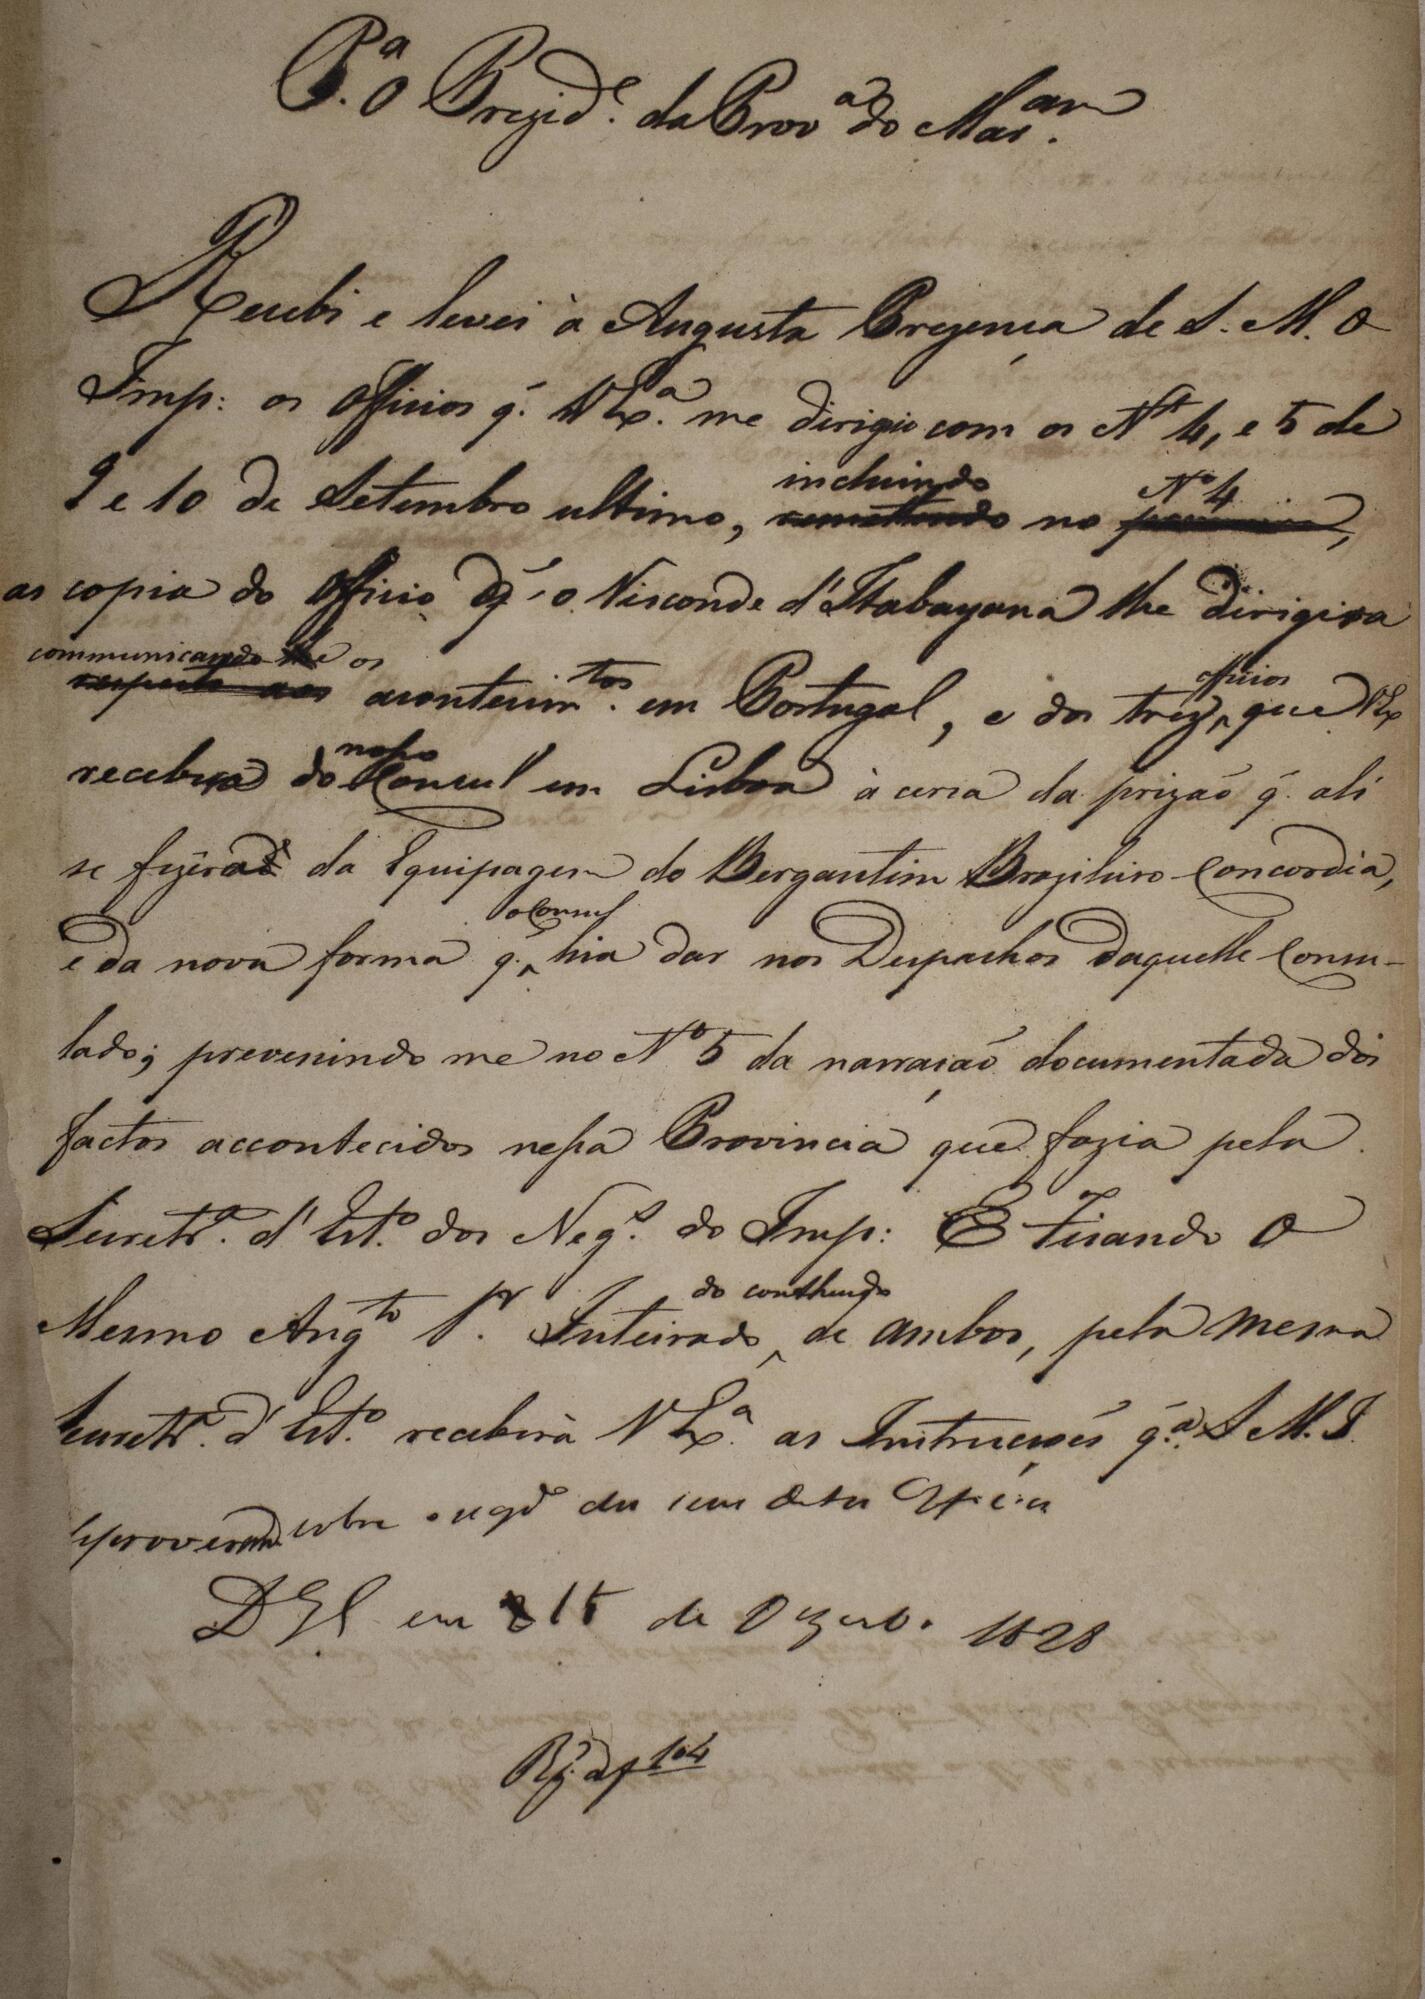 P.ª O Prezid.e da Prov.ª do Mar.am
Recebi e levei à Augusta Prezença de S. M. O
Imp: os Officios q.' V Ex.ª me dirigio com os N.os 4, e 5 de
9 e 10 de Setembro ultimo, incluindo no N.º 4,
as copia do Officio q' o Visconde d'Itabayana lhe dirigira
communicando os acontecim.tos em Portugal, e dos trez officios que V Ex
recebera do nosso Consul em Lisboa à cerca da prizaõ q. ali
se fizera da Equipagem do Bergantim Brazileiro Concordia,
e da nova forma q. o Consul hia dar nos Despachos daquelle Consu-
lado; prevenindo me no N.º 5 da narraçaõ documentada dos
factos accontecidos nessa Provincia que fazia pela
Secretr.ª d'Est.º dos Neg.s do Imp: E Ficando O
Mesmo Aug.to S.r Inteirado do contheudo de ambos, pela mesma
Secretr.ª d'Est.º receberà V Ex.ª as Instrucçoẽs q.' a S M. I.
sobre
D G. em 15 de Dezembr.o 1828
Rg. a f 104